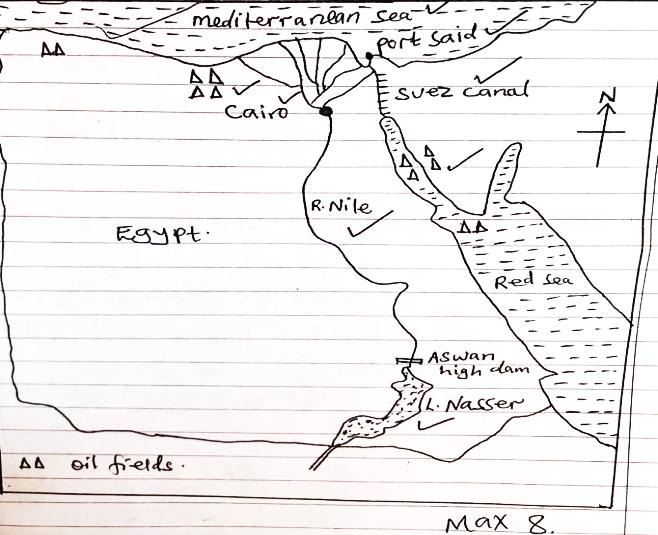 mediterranean sea
port said
suez canal
Cairo
N
R. Nile
Egypt.
Red sea
Aswan
high dam
L. Nasser
oil fields.
Max 8.